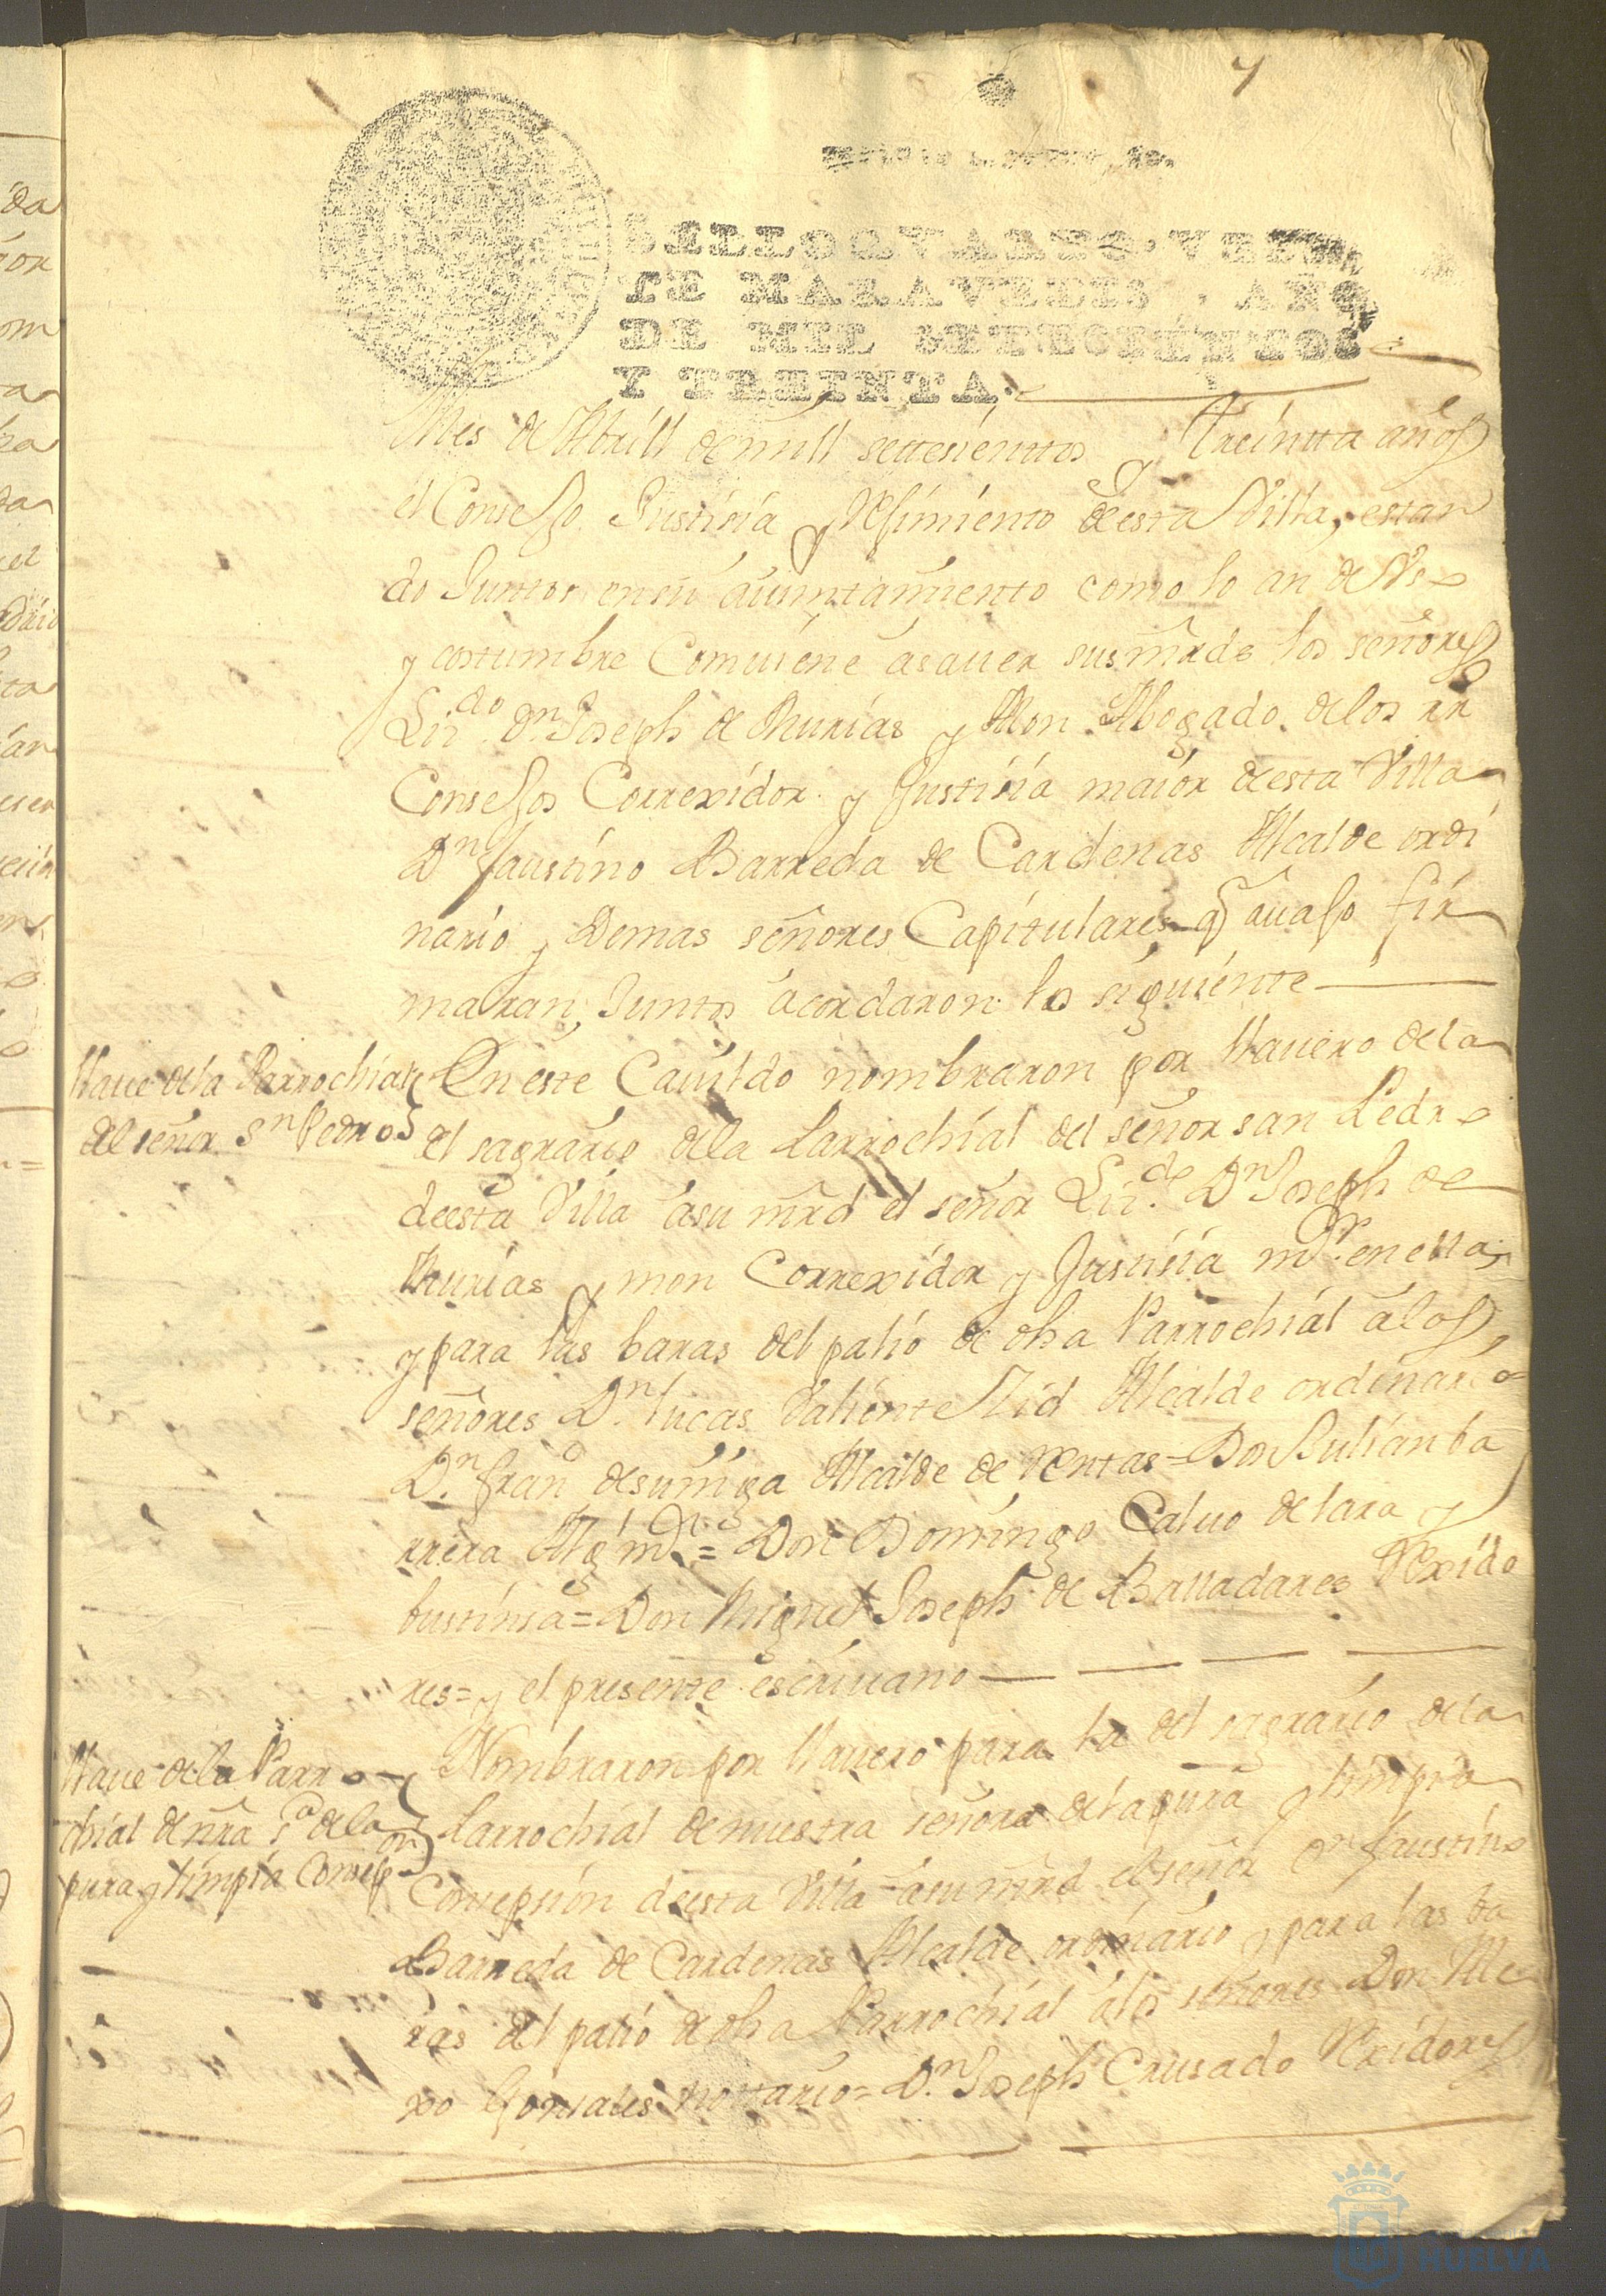 SELLO QVARTO, VEIN
TE MARAVEDIS, AÑO
DE MIL SETECIENTOS
Y TREINTA.
Mes de Abrill de mill settesienttos y treintta años
el Consejo Justisia y Rejimiento de esta Villa, estan
do Juntos en su aiuntamiento como lo an de Vso
y costumbre Comuiene asauer sus mrds los señores
Lizdo Dn Joseph de Murias y Mon Abogado de los RR
Consejos Correxidor y Justisia maior de esta Villa
Dn faustino Barreda de Cardenas Alcalde ordi
nario y Demas señores Capitulares q auajo fir
maran, Juntos acordaron lo siguiente
Llaue de la Parrochial
del señor Sn Pedro
En este Cauildo nombraron por llauero de la
el sagrario de la Parrochial del señor san Pedro
de esta Villa a su mrd el señor Lizdo Dn Joseph de
Murias y mon Correxidor y Justisia mor en ella
y para las baras del palio de dha Parrochial a los
señores Dn lucas Valiente Zid Alcalde ordinario
Dn Frano de suñiga Alcalde de Rentas = Don Julian ba
rrera Alg mor = Don Domingo Caluo de lara y
bustinsa = Don Miguel Joseph de Balladares Rexido
res = y el presente escriuano
Llaue de la Parro
chial de nra sa de la
pura y limpia Consepon
Nombraron por llauero para la del sagrario de la
Parrochial de nuestra señora de la pura y limpia
Consepsion de esta Villa = a su mrd el señor Dn faustino
Barreda de Cardenas Alcalde ordinario y para las ba
ras del palio de dha Parrochial a los señores Don Ale
xo Gonsales nottario = Dn Joseph Crusado Rexidores
HUELVA